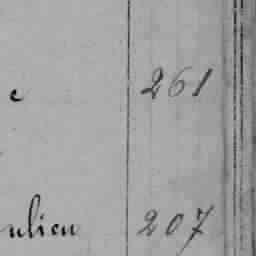 e 261
ulieu 207